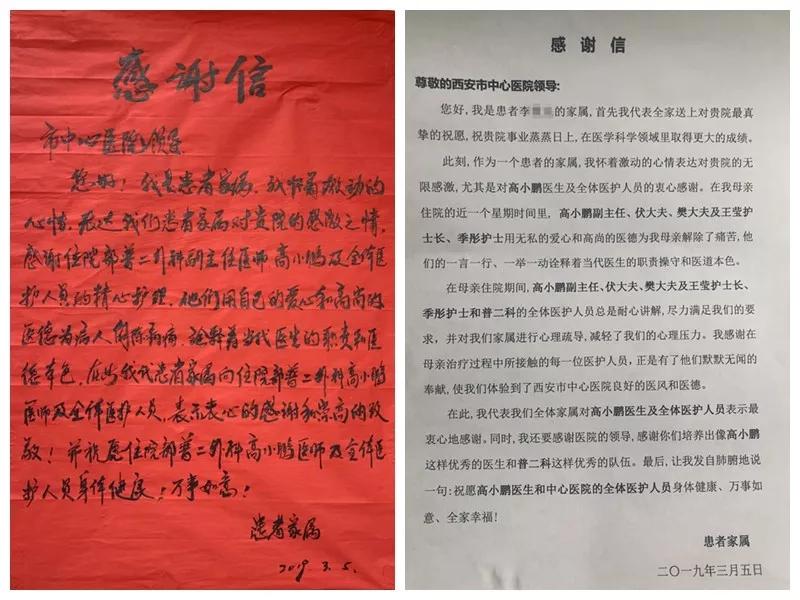 感谢信
市中心医院领导
您好！我是患者家属，我怀着激动的
心情，表达我们患者家属对贵院的感激之情，
感谢住院部普二外科副主任医师高小鹏及全体医
护人员的精心护理，他们用自己的爱心和高尚的
医德为病人解除病痛，诠释着当代医生的职责和医
德本色，在此我代患者家属向住院部普二外科高小鹏
医师及全体医护人员，表示衷心的感谢和崇高的致
敬！并祝愿住院部普二外科高小鹏医师及全体医
护人员身体健康！万事如意！
患者家属
2019.3.5.
感谢信
尊敬的西安市中心医院领导:
您好，我是患者李的家属，首先我代表全家送上对贵院最真
挚的祝愿，祝贵院事业蒸蒸日上，在医学科学领域里取得更大的成绩。
此刻，作为一个患者的家属，我怀着激动的心情表达对贵院的无
限感激，尤其是对高小鹏医生及全体医护人员的衷心感谢。在我母亲
住院的近一个星期时间里，高小鹏副主任、伏大夫、樊大夫及王莹护
士长、季彤护士用无私的爱心和高尚的医德为我母亲解除了痛苦，他
们的一言一行、一举一动诠释着当代医生的职责操守和医道本色。
在母亲住院期间，高小鹏副主任、伏大夫、樊大夫及王莹护士长、
季彤护士和普二科的全体医护人员总是耐心讲解，尽力满足我们的要
求，并对我们家属进行心理疏导，减轻了我们的心理压力。我感谢在
母亲治疗过程中所接触的每一位医护人员，正是有了他们默默无闻的
奉献，使我们体验到了西安市中心医院良好的医风和医德。
在此，我代表我们全体家属对高小鹏医生及全体医护人员表示最
衷心地感谢。同时，我还要感谢医院的领导，感谢你们培养出像高小鹏
这样优秀的医生和普二科这样优秀的团队。最后，让我发自肺腑地说
一句:祝愿高小鹏医生和中心医院的全体医护人员身体健康、万事如
意、全家幸福！
患者家属
二〇一九年三月五日